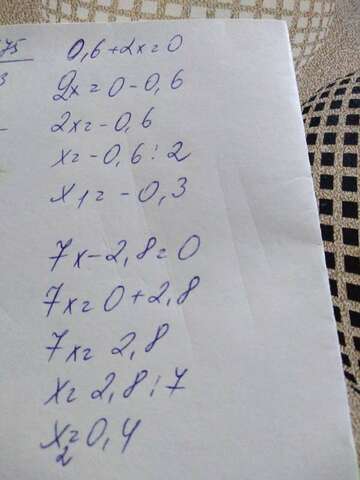 75
0,6+2x=0
3
2x=0-0,6
2x=-0,6
x=-0,6:2
x1=-0,3
7x-2,8=0
7x=0+2,8
7x=2,8
x=2,8:7
x2=0,4